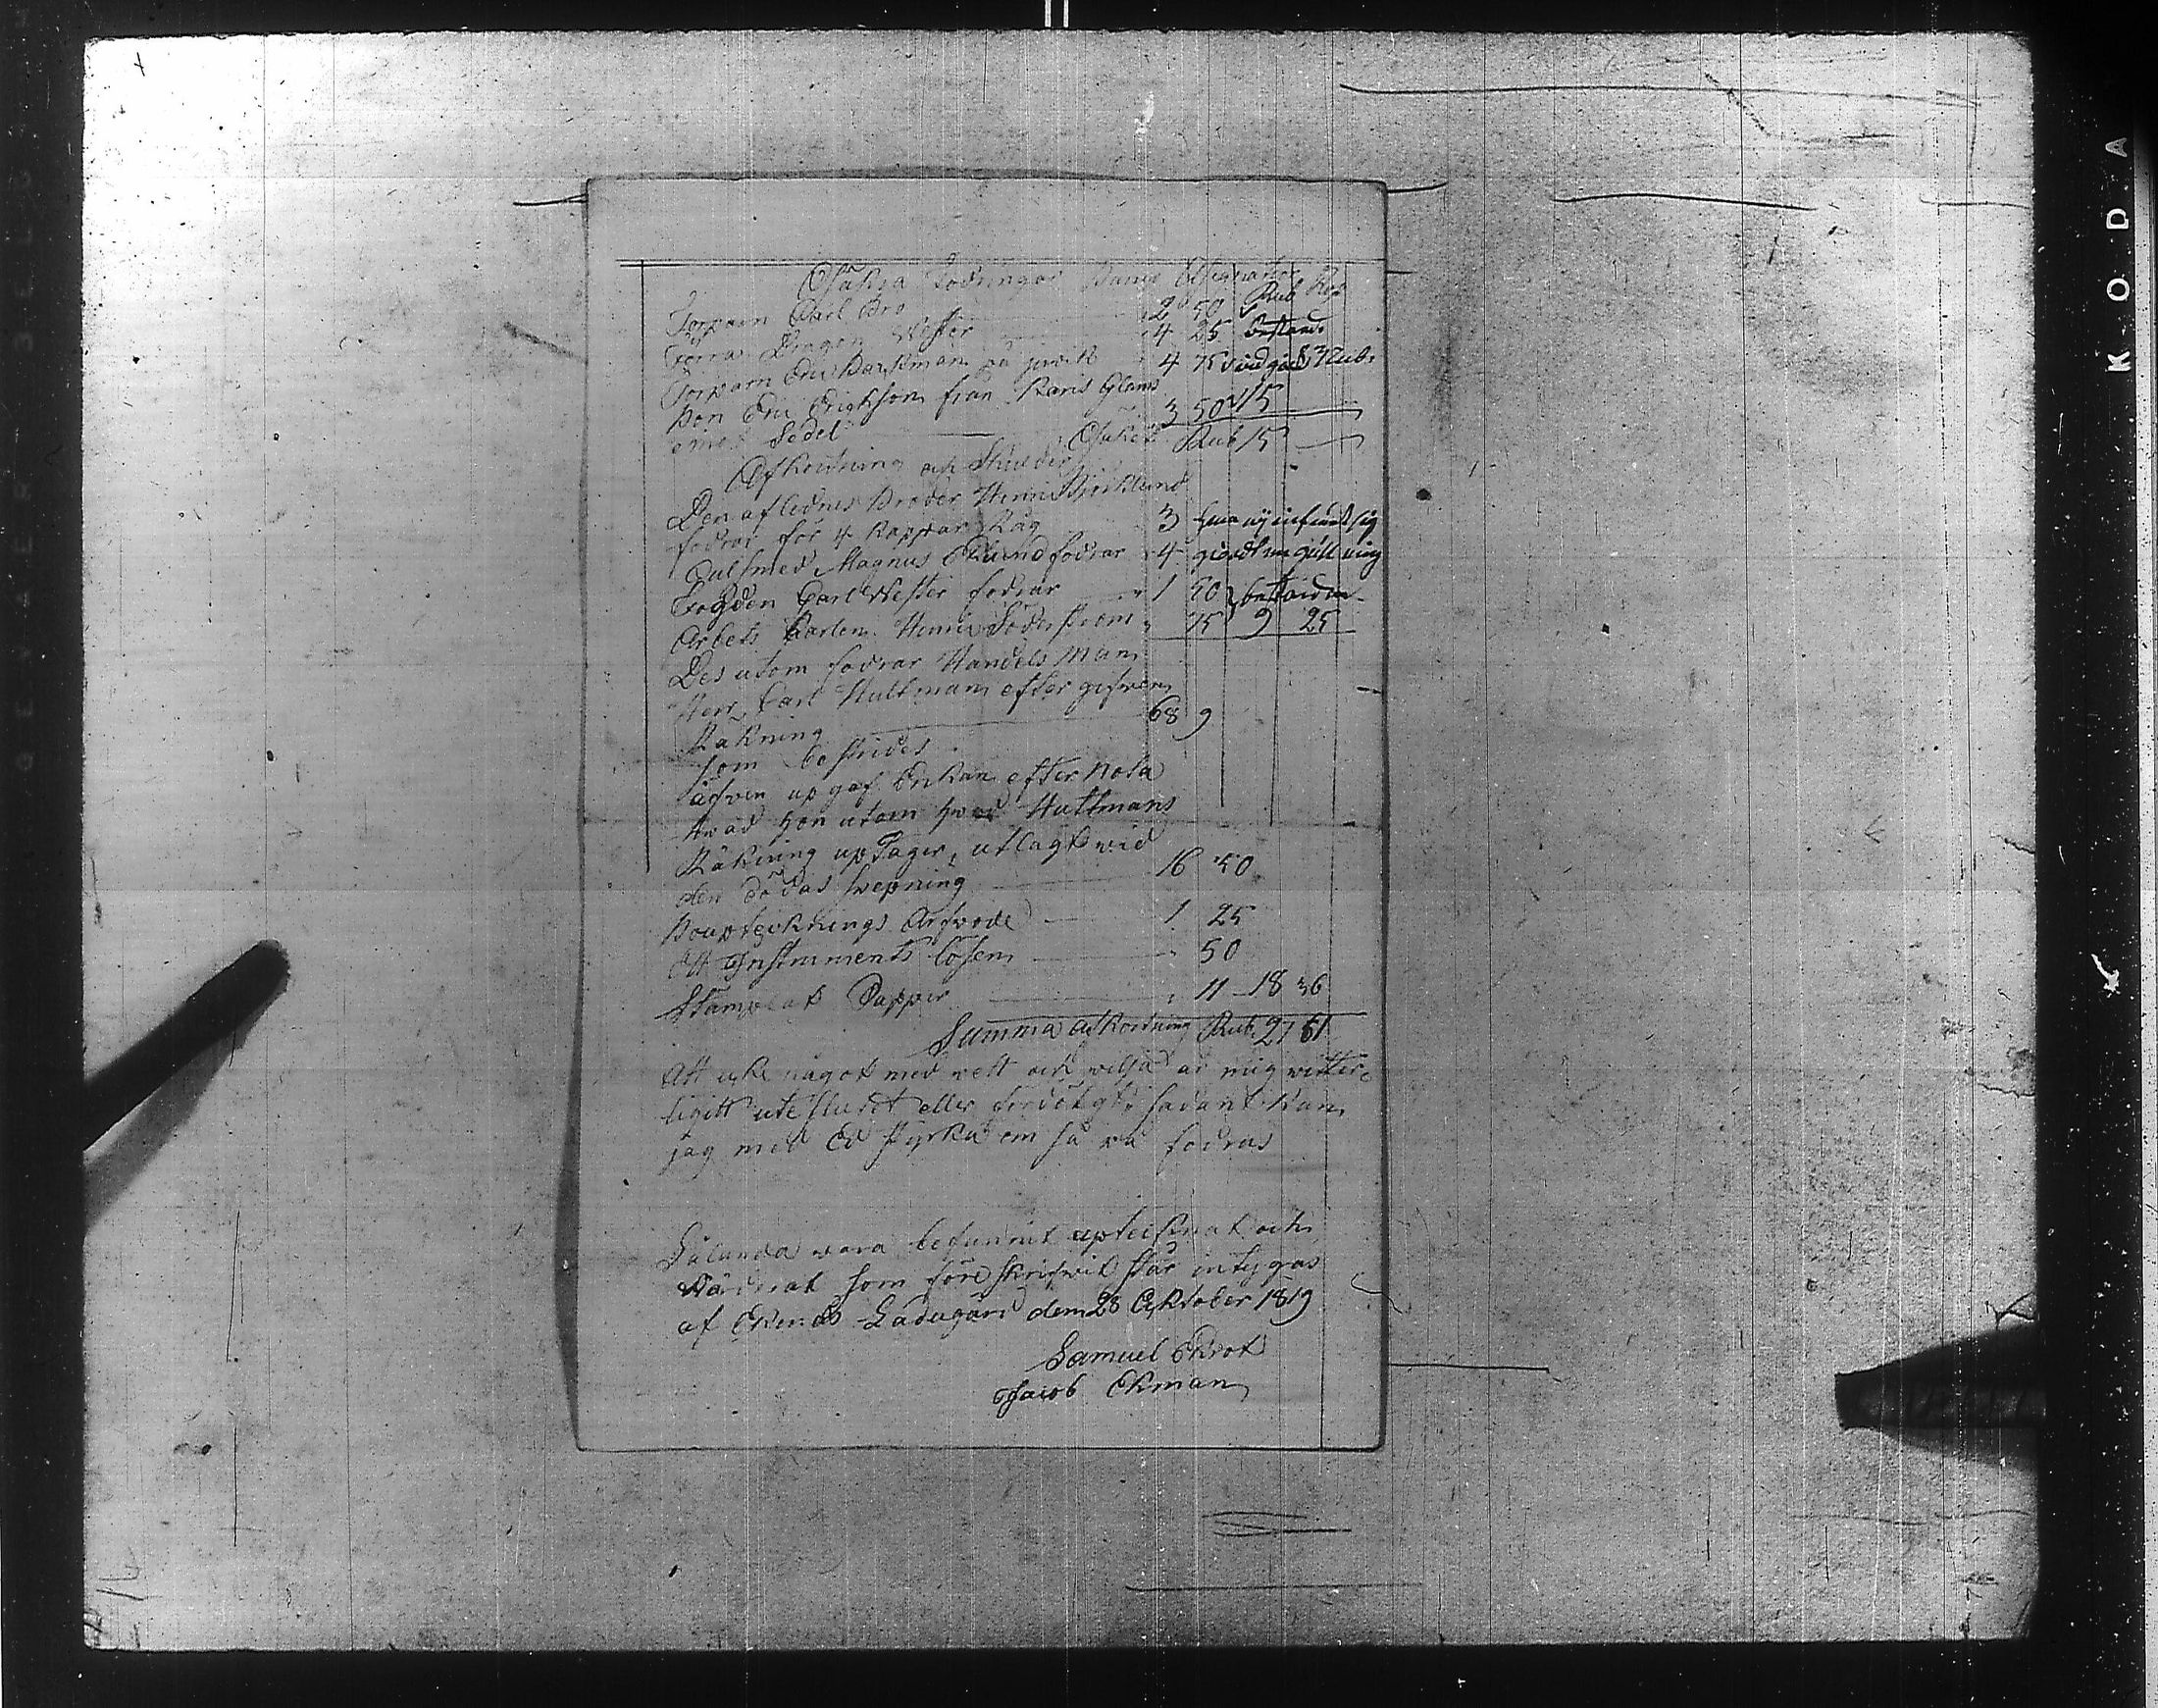 Osäkra Fodringar Banco Assignatio
Torparn Carl Bro 2 50 Rub Kop
Förra Dragon Wester 4 25
Torparn Eric Backman på 4 75 Rub
Bon Eric Erickson från Karis
Sedel 3 50 15
Osäkert Rub 15
Afkortning och Skulder
Den aflednes Broder Henric Björklund
fodrar för 4 Kappar Råg 3 sig
Gulsmed Magnus Eklund fodrar 4
Fogden Carl Wester fodrar 1 50
Arbets Karlen Henric Söderström 75 9 25
Des utom fodrar Handels Man
Herr Carl Hultman efter gifven
Räkning 68 9
som bestrides
äfven up gaf Enkan efter Nota
Hvad hon utom hvad Hultmans
Räkning uptager, utlagt vid
den dödas svepning 16 50
Boupteknings Arfvode 1 25
Ett Instruments lösen 50
Stämplat Papper 11 18 36
Summa Afkortning Rub 27 61
Att icke något med vett och vilja är mig witter
ligitt uteslutet eller fördöligt, sådant kan
jag med Ed styrka om så på fodras
Sålunda vara befunnit upteiknat och
Värderat som före skrifvit står intygas
af Ekenäs Ladugård dem 28 October 1819
Samuel Ekrot
Jacob Ekman
KODA